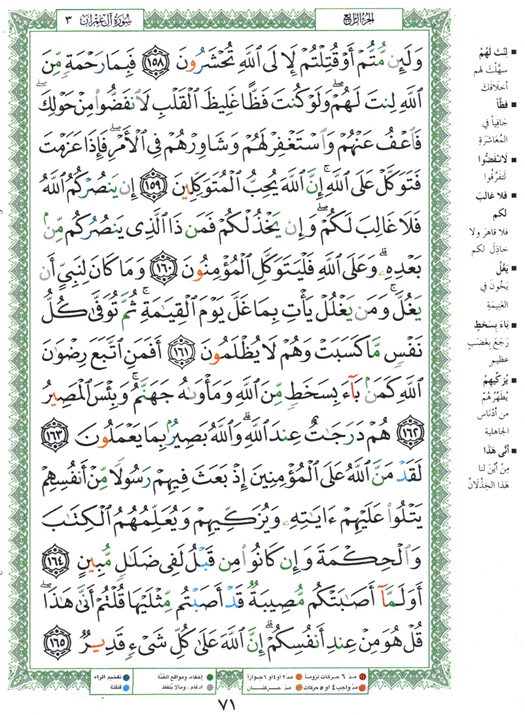 الجزء الرابع
سورة آل عمران ٣
وَلَئِن مُّتُّمْ أَوْ قُتِلْتُمْ لَإِلَى ٱللَّهِ تُحْشَرُونَ ١٥٨ فَبِمَا رَحْمَةٍ مِّنَ
ٱللَّهِ لِنتَ لَهُمْ ۖ وَلَوْ كُنتَ فَظًّا غَلِيظَ ٱلْقَلْبِ لَٱنفَضُّوا۟ مِنْ حَوْلِكَ ۖ
فَٱعْفُ عَنْهُمْ وَٱسْتَغْفِرْ لَهُمْ وَشَاوِرْهُمْ فِى ٱلْأَمْرِ ۖ فَإِذَا عَزَمْتَ
فَتَوَكَّلْ عَلَى ٱللَّهِ ۚ إِنَّ ٱللَّهَ يُحِبُّ ٱلْمُتَوَكِّلِينَ ١٥٩ إِن يَنصُرْكُمُ ٱللَّهُ
فَلَا غَالِبَ لَكُمْ ۖ وَإِن يَخْذُلْكُمْ فَمَن ذَا ٱلَّذِى يَنصُرُكُم مِّنۢ
بَعْدِهِۦ ۗ وَعَلَى ٱللَّهِ فَلْيَتَوَكَّلِ ٱلْمُؤْمِنُونَ ١٦٠ وَمَا كَانَ لِنَبِىٍّ أَن
يَغُلَّ ۚ وَمَن يَغْلُلْ يَأْتِ بِمَا غَلَّ يَوْمَ ٱلْقِيَٰمَةِ ۚ ثُمَّ تُوَفَّىٰ كُلُّ
نَفْسٍ مَّا كَسَبَتْ وَهُمْ لَا يُظْلَمُونَ ١٦١ أَفَمَنِ ٱتَّبَعَ رِضْوَٰنَ
ٱللَّهِ كَمَنۢ بَآءَ بِسَخَطٍ مِّنَ ٱللَّهِ وَمَأْوَىٰهُ جَهَنَّمُ ۚ وَبِئْسَ ٱلْمَصِيرُ
١٦٢ هُمْ دَرَجَٰتٌ عِندَ ٱللَّهِ ۗ وَٱللَّهُ بَصِيرٌۢ بِمَا يَعْمَلُونَ ١٦٣
لَقَدْ مَنَّ ٱللَّهُ عَلَى ٱلْمُؤْمِنِينَ إِذْ بَعَثَ فِيهِمْ رَسُولًا مِّنْ أَنفُسِهِمْ
يَتْلُوا۟ عَلَيْهِمْ ءَايَٰتِهِۦ وَيُزَكِّيهِمْ وَيُعَلِّمُهُمُ ٱلْكِتَٰبَ
وَٱلْحِكْمَةَ وَإِن كَانُوا۟ مِن قَبْلُ لَفِى ضَلَٰلٍ مُّبِينٍ ١٦٤
أَوَلَمَّآ أَصَٰبَتْكُم مُّصِيبَةٌ قَدْ أَصَبْتُم مِّثْلَيْهَا قُلْتُمْ أَنَّىٰ هَٰذَا ۖ
قُلْ هُوَ مِنْ عِندِ أَنفُسِكُمْ ۗ إِنَّ ٱللَّهَ عَلَىٰ كُلِّ شَىْءٍ قَدِيرٌ ١٦٥
لِنْتَ لَهُمْ
سَهَّلْتَ لهم
أخلاقَكَ
فظًّا
جَافِياً في
المُعَاشَرَةِ
لانْفَضُّوا
لَتَفَرَّقُوا
فلا غالبَ
لكم
فلا قاهرَ ولا
خاذِلَ لكم
يَغُلَّ
يَخُونَ في
الغنيمةِ
بَاءَ بسَخَطٍ
رَجَعَ بِغَضَبٍ
عظيمٍ
يُزَكِّيهِمْ
يُطَهِّرُهُمْ
من أدْنَاسِ
الجاهلية
أنَّى هَذَا
مِنْ أيْنَ لنا
هذا الخِذْلانُ
مد ٦ حركات لزوماً
مد ٢ أو ٤ أو ٦ جوازاً
إخفاء، ومواقع الغُنَّة
تفخيم الراء
مد واجب ٤ أو ٥ حركات
مد حركتان
إدغام، وما لا يُلفظ
قلقلة
٧١